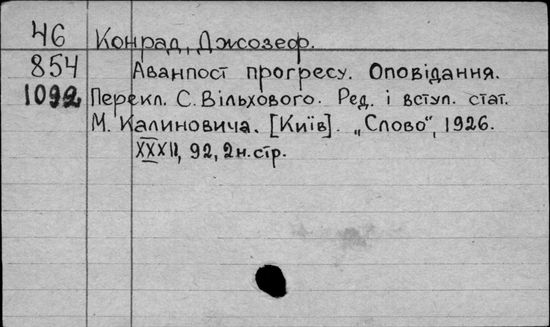 46 Конрад, Джозеф.
854 Аванпост прогресу. Оповідання.
1092 Перекл. С. Вільхового. Ред. і вступ. стат.
М. Калиновича. [Київ]. „Слово“, 1926.
XXXII, 92, 2 н. стр.